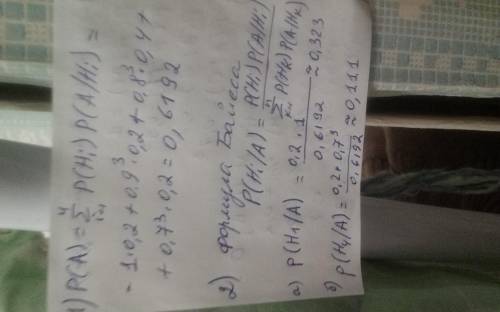 1) P(A) = ∑ⁿᵢ₌₁ P(Hᵢ) P(A/Hᵢ) =
= 1·0,2 + 0,9³·0,2 + 0,8³·0,4 +
+ 0,7³·0,2 = 0,6192
2) формула Байеса
P(Hᵢ/A) = P(Hᵢ) P(A/Hᵢ) / ∑ⁿₖ₌₁ P(Hₖ) P(A/Hₖ)
а) P(H₁/A) = 0,2·1 / 0,6192 ≈ 0,323
б) P(H₄/A) = 0,2·0,7³ / 0,6192 ≈ 0,111